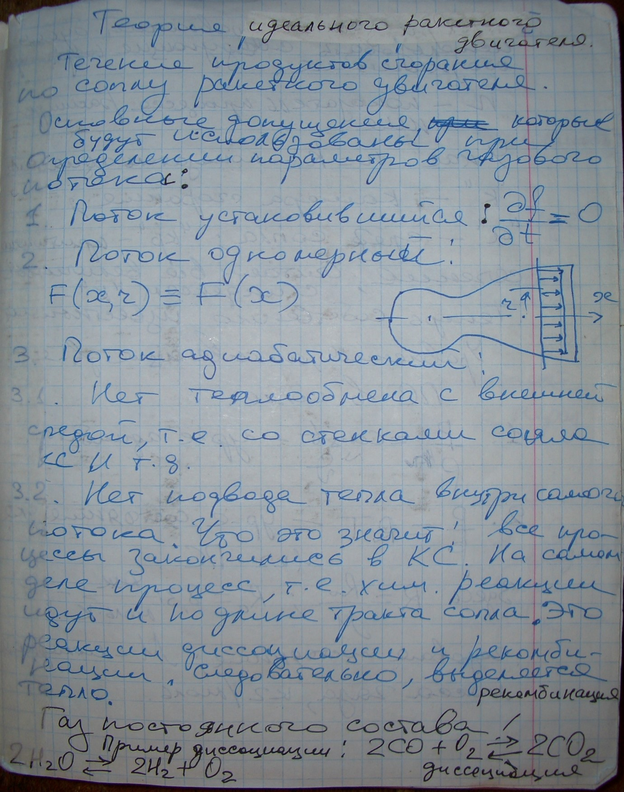 Теория идеального ракетного
двигателя.
Течение продуктов сгорания
по соплу ракетного двигателя.
Основные допущения, которые
будут использованы при
определении параметров газового
потока:
1. Поток установившийся: ∂f/∂t = 0
2. Поток одномерный!
F(x,r) ≡ F(x)
r
x
3. Поток адиабатический!
3.1. Нет теплообмена с внешней
средой, т.е. со стенками сопла
КС и т.д.
3.2. Нет подвода тепла внутри самого
потока. Что это значит! все про-
цессы закончились в КС. На самом
деле процесс, т.е. хим. реакции
идут и по длине тракта сопла. Это
реакции диссоциации и рекомби-
нации, следовательно, выделяется
тепло.
рекомбинация
Газ постоянного состава!
Пример диссоциации: 2CO + O₂ ⇄ 2CO₂
диссоциация
2H₂O ⇄ 2H₂ + O₂